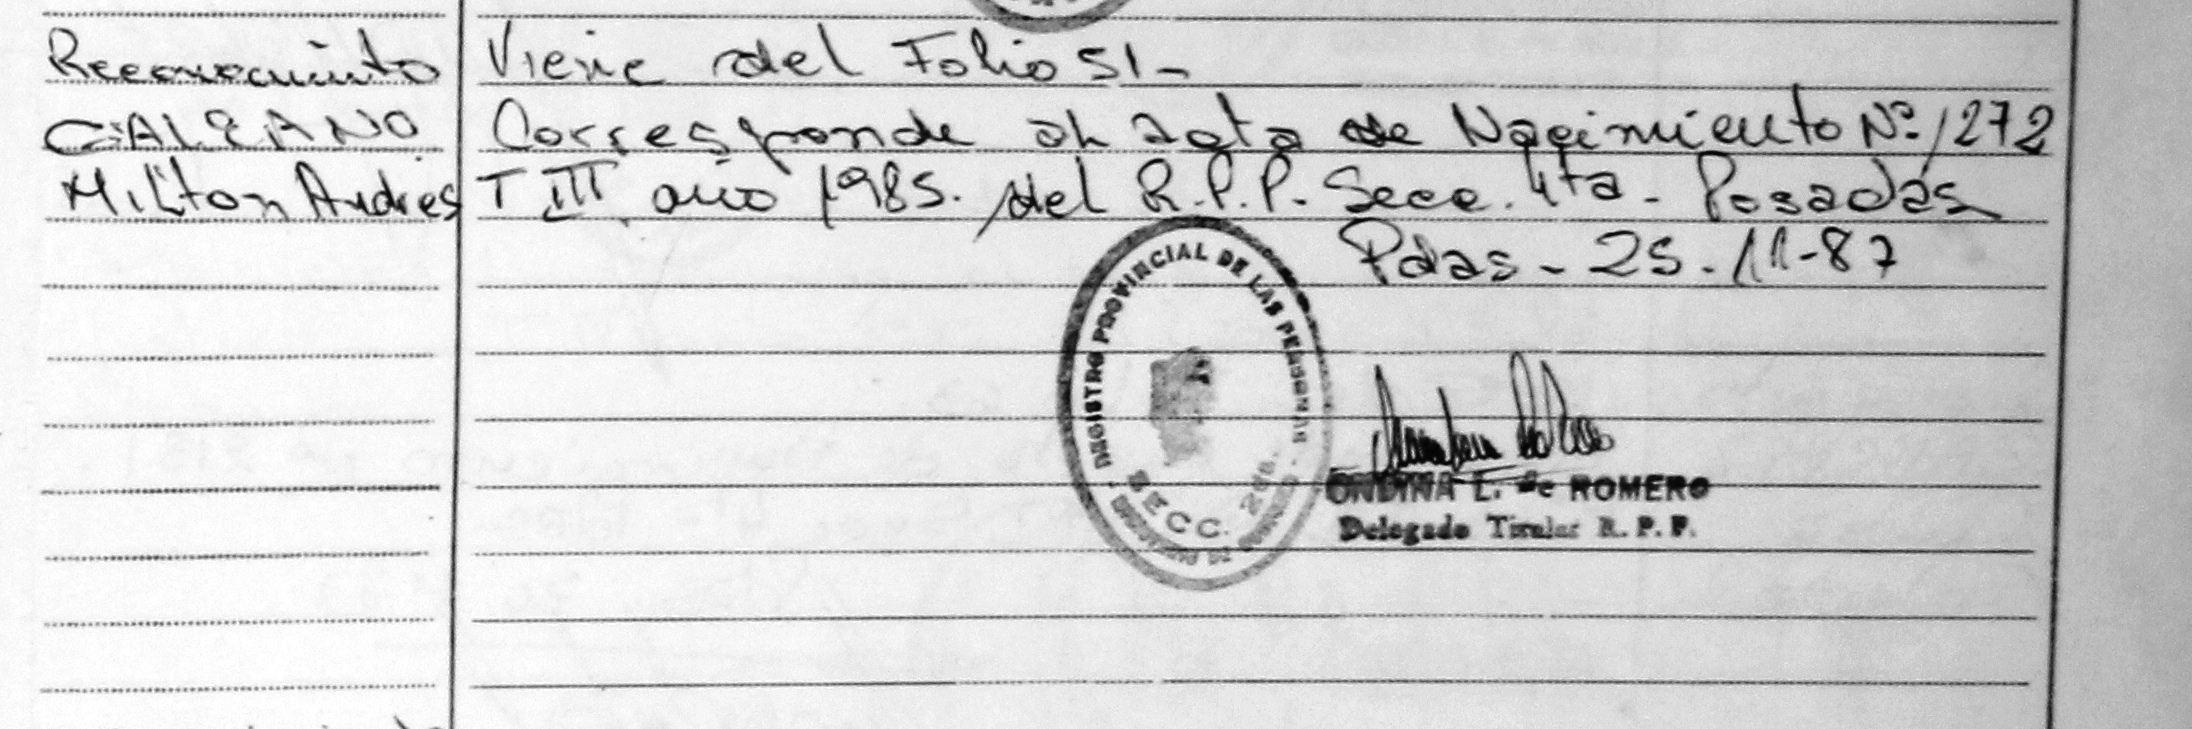 Reconocimiento
GALEANO
Milton Andres
Viene del Folio 51-
Corresponde al Acta de Nacimiento Nº 1272
T III año 1985. del R.P.P. Secc. 4ta - Posadas
Pdas - 25-11-87
REGISTRO PROVINCIAL DE LAS PERSONAS
SECC. 2da.
ONDINA L. de ROMERO
Delegado Titular R. P. P.